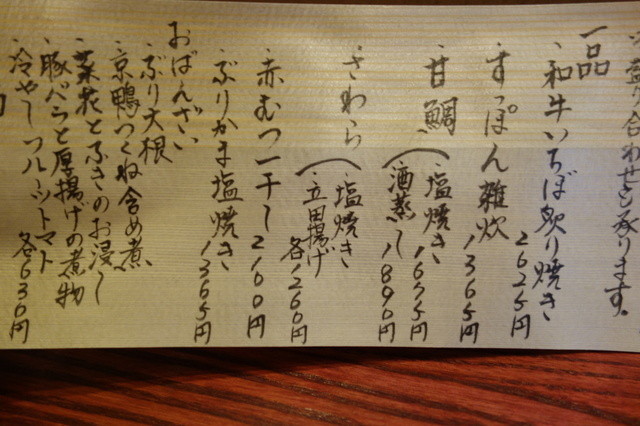 盛り合わせも承ります。
一品
・和牛いちぼ炙り焼き 2625円
・すっぽん雑炊 1365円
・甘鯛
・塩焼き 1675円
・酒蒸し 1890円
・さわら
・塩焼き
・立田揚げ 各1260円
・赤むつ一干し 2100円
・ぶりかま塩焼き 1365円
おばんざい
・ぶり大根
・京鴨つくね含め煮
・菜花とふきのお浸し
・豚バラと厚揚げの煮物
・冷やしフルーツトマト 各630円